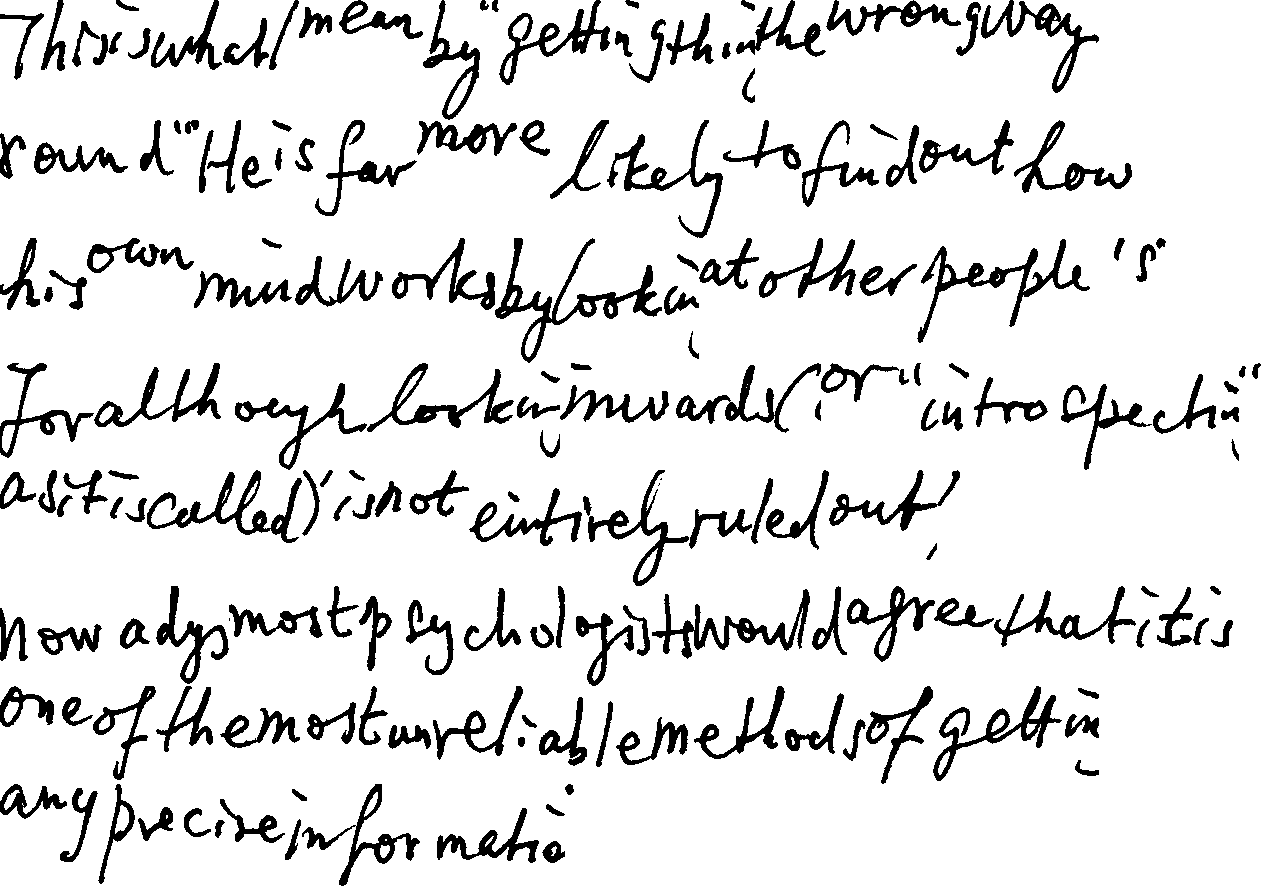 This is what I mean by "getting thin the wrong way
round". He is far more likely to find out how
his own mind works by lookin at other people's.
For although lookin inwards (: or "introspectin"
as it is called)' is not entirely ruled out,'
nowadys most psychologists would agree that it is
one of the most unreliable methods of gettin
any precise informatio.